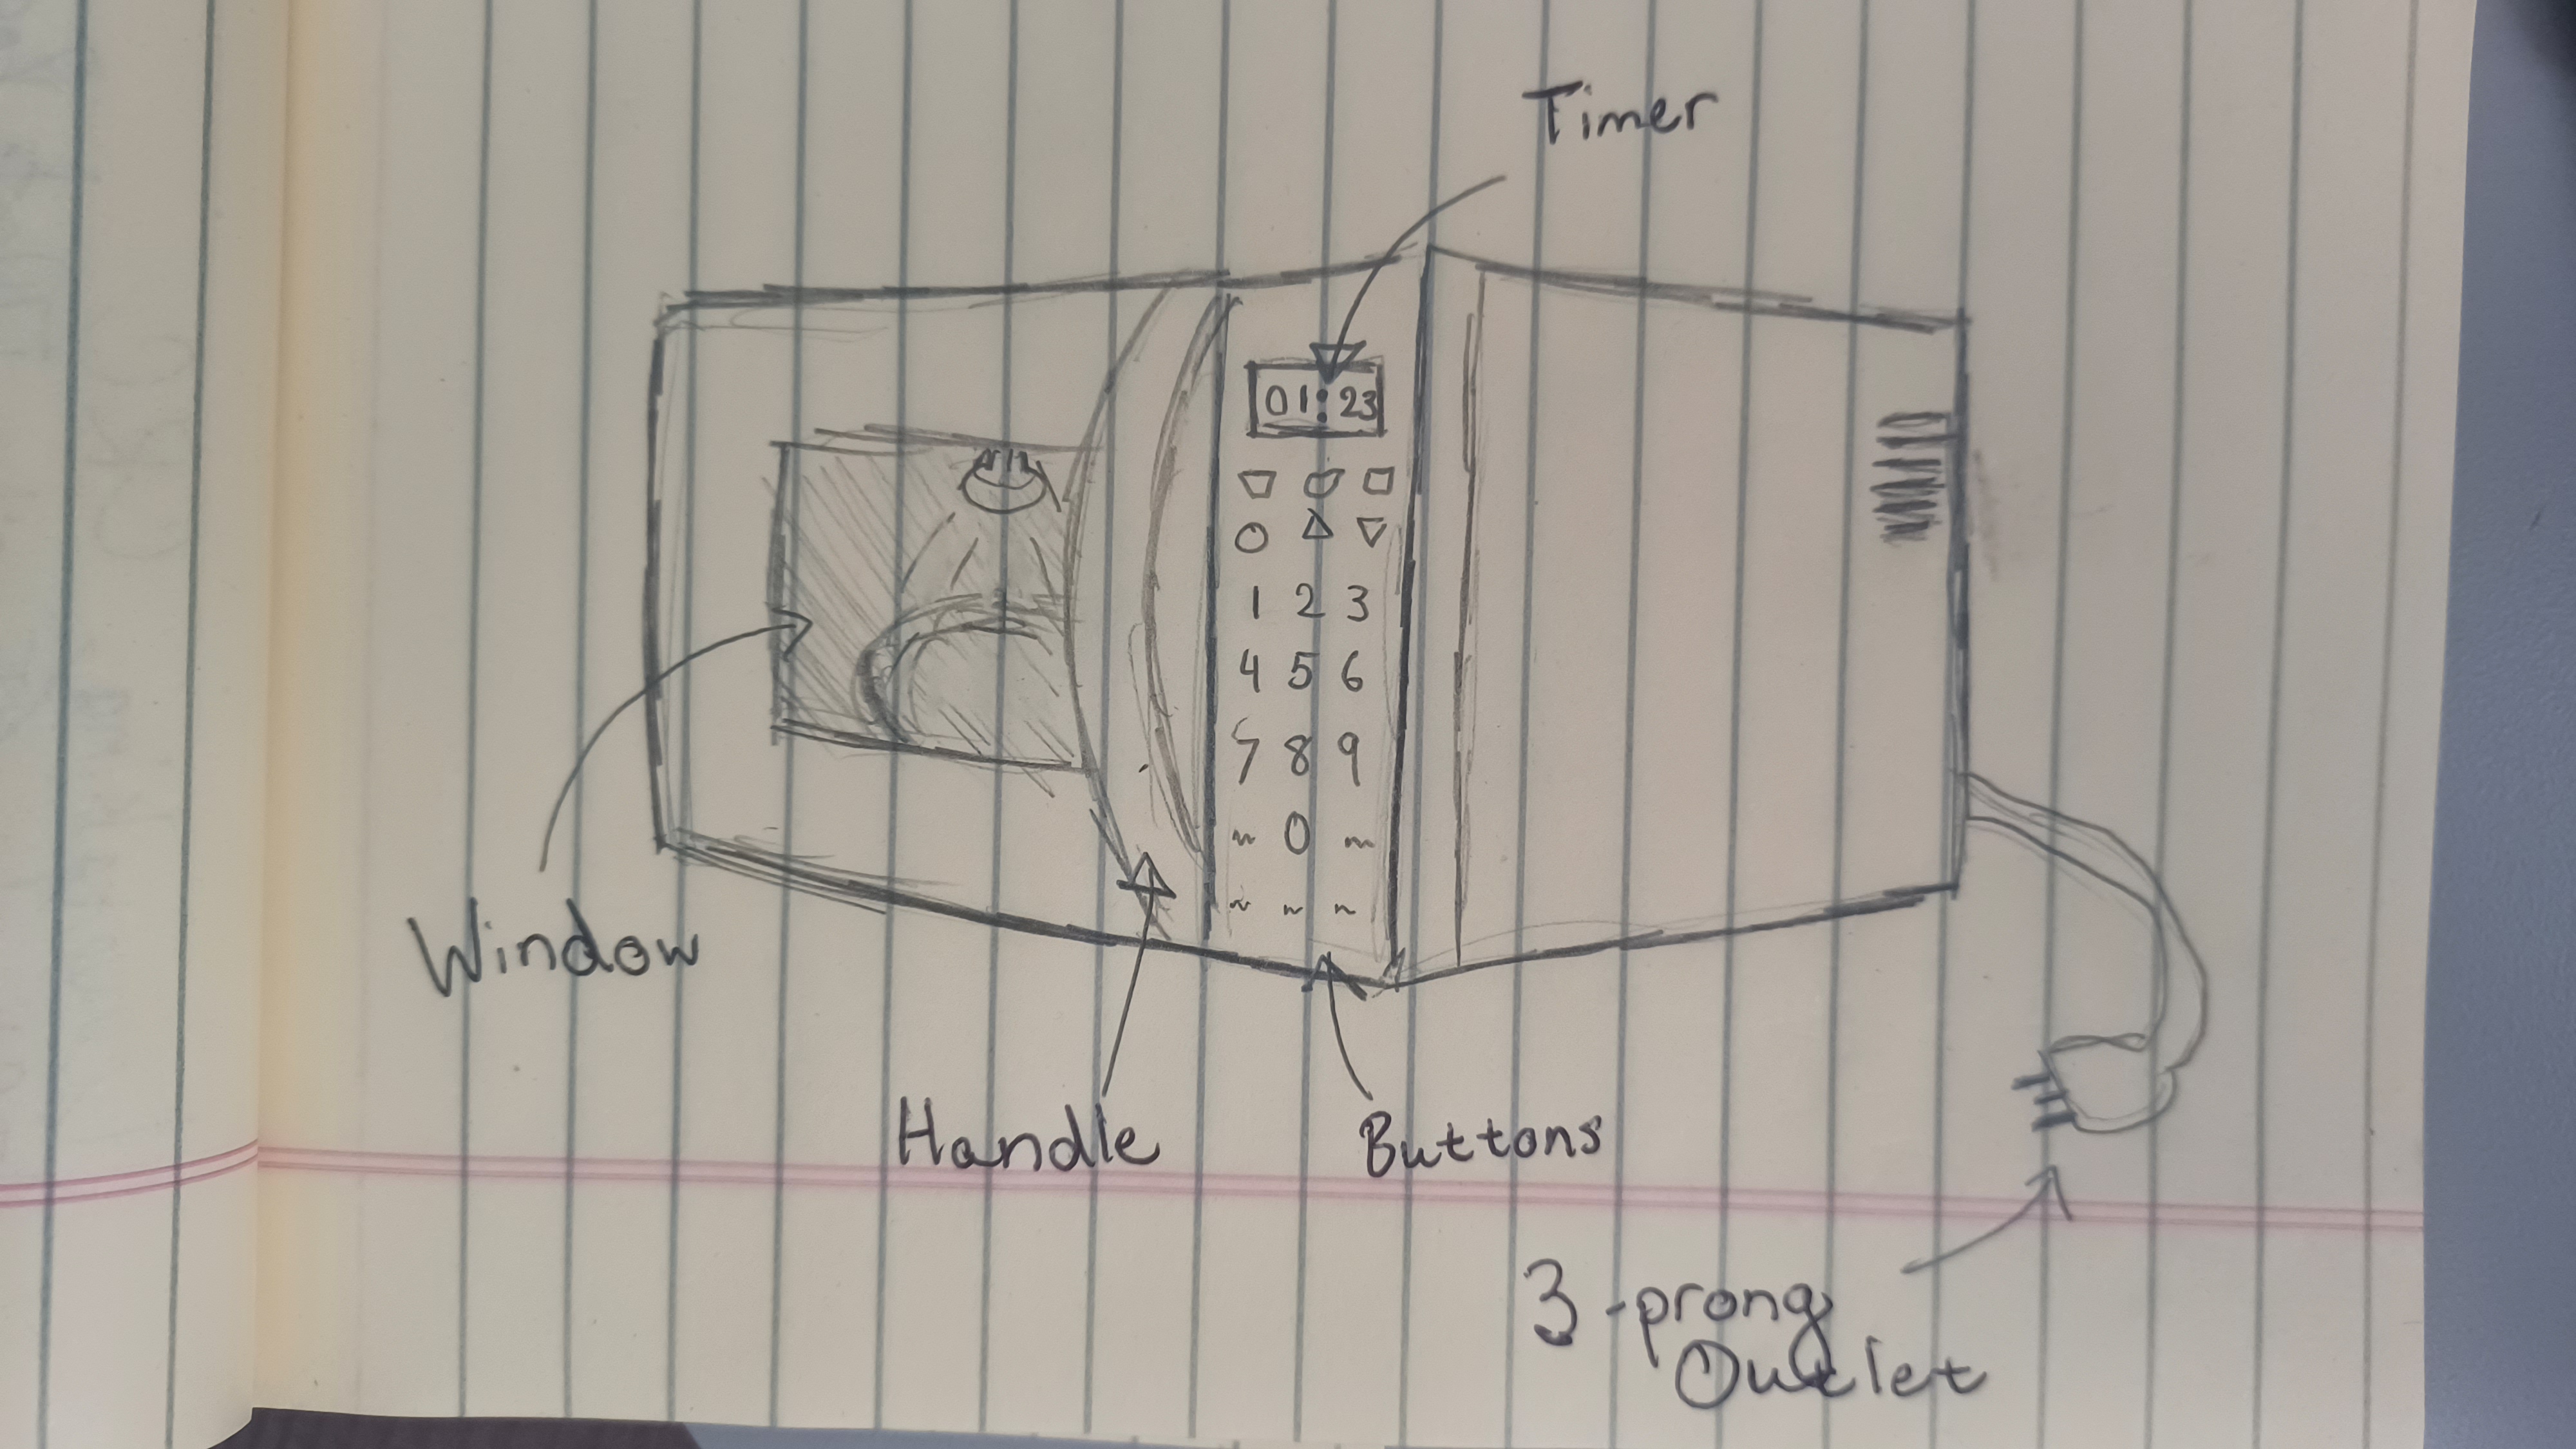 Timer
01:23
1 2 3
4 5 6
7 8 9
0
Window
Handle
Buttons
3-prong
Outlet